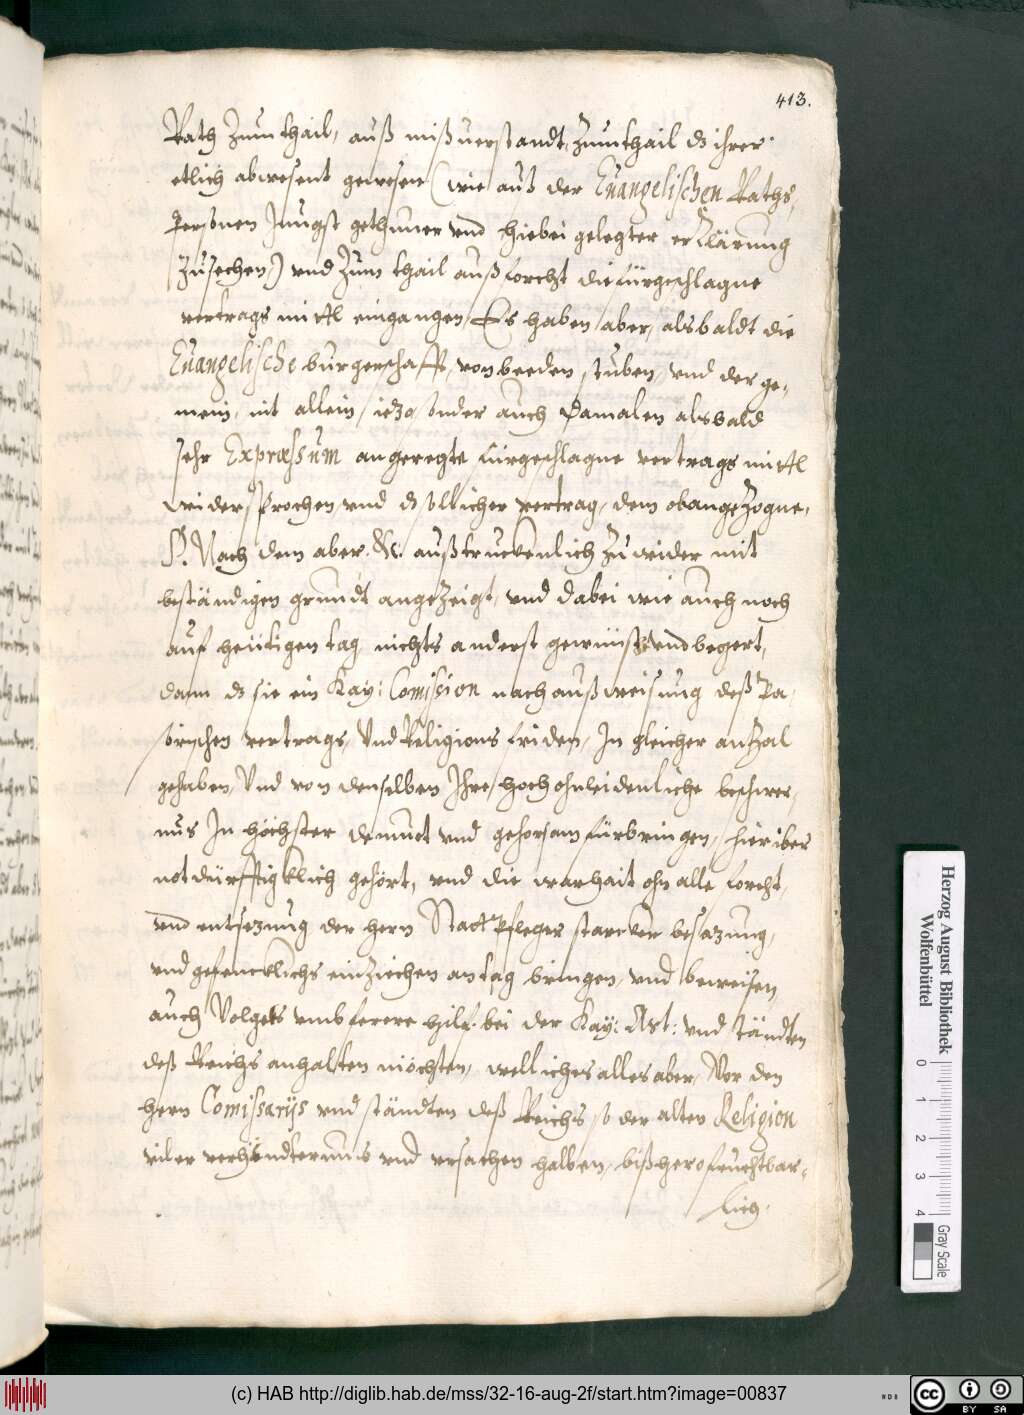 413.
Rath Zum thail, auß mißuerstandt, Zum thail ds ihrer
etlich abwesent gewesen (wie auß der Euangelischen Raths,
Personen Jüngst gethuner vnd hiebei gelegter erklärung
zusechen) vnd Zum thail auß forcht die fürgeschlagne
vertrags mittl eingangen, Es haben aber, alsbaldt die
Euangelische burgerschafft, von beeden stuben, vnd der ge,
mein, nit allein iezo sonder auch damalen alsbald
sehr Expræssum angeregte fürgeschlagne vertrags mittl
widersprochen vnd ds sollicher vertrag, dem obangezogne,
§. Nach dem aber &c. außtruckenlich zuwider mit
beständigen grundt angezeigt, vnd dabei wie auch noch
auf heütigen tag nichts anderst gewünscht vnd begert,
dann ds sie ein Kay: Comission nach außweisung deß Pa,
sorischen vertrags, Vnd Religions friden, In gleicher anzal
gehaben, Vnd von denselben Ihre hochohnleidenliche beschwer,
nus In höchster demuet vnd gehorsam fürbringen, hieriber
notdürfftigklich gehört, vnd die warhait ohn alle forcht,
vnd entsezung der hern Statt Pfleger starcken besazung,
vnd gefencklichs einziechen an tag bringen, vnd beweisen,
auch Volgets vmb ferere hilf bei der Kay: Mst: vnd ständten
deß Reichs anhalten möchten, welliches alles aber, Vor den
hern Comissarijs vnd ständten deß Reichs so der alten Religion
viler verhindternus vnd vrsachen halben, bißhero fruchtbar,
lich.
Herzog August Bibliothek
Wolfenbüttel
0 1 2 3 4
Gray Scale
(c) HAB http://diglib.hab.de/mss/32-16-aug-2f/start.htm?image=00837
WDB
cc BY SA